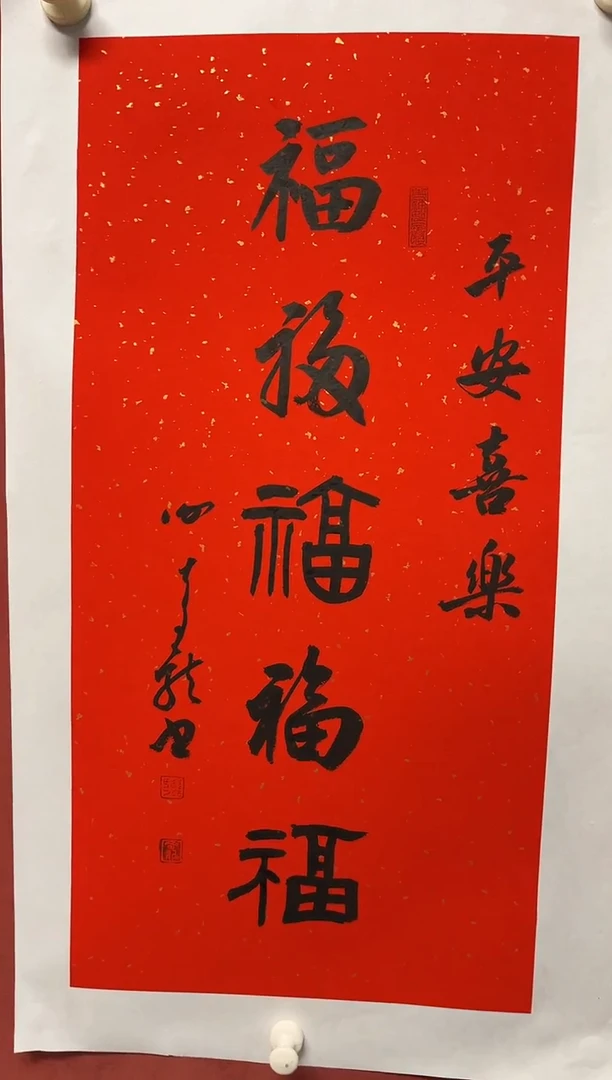 平安喜樂
福福福福福